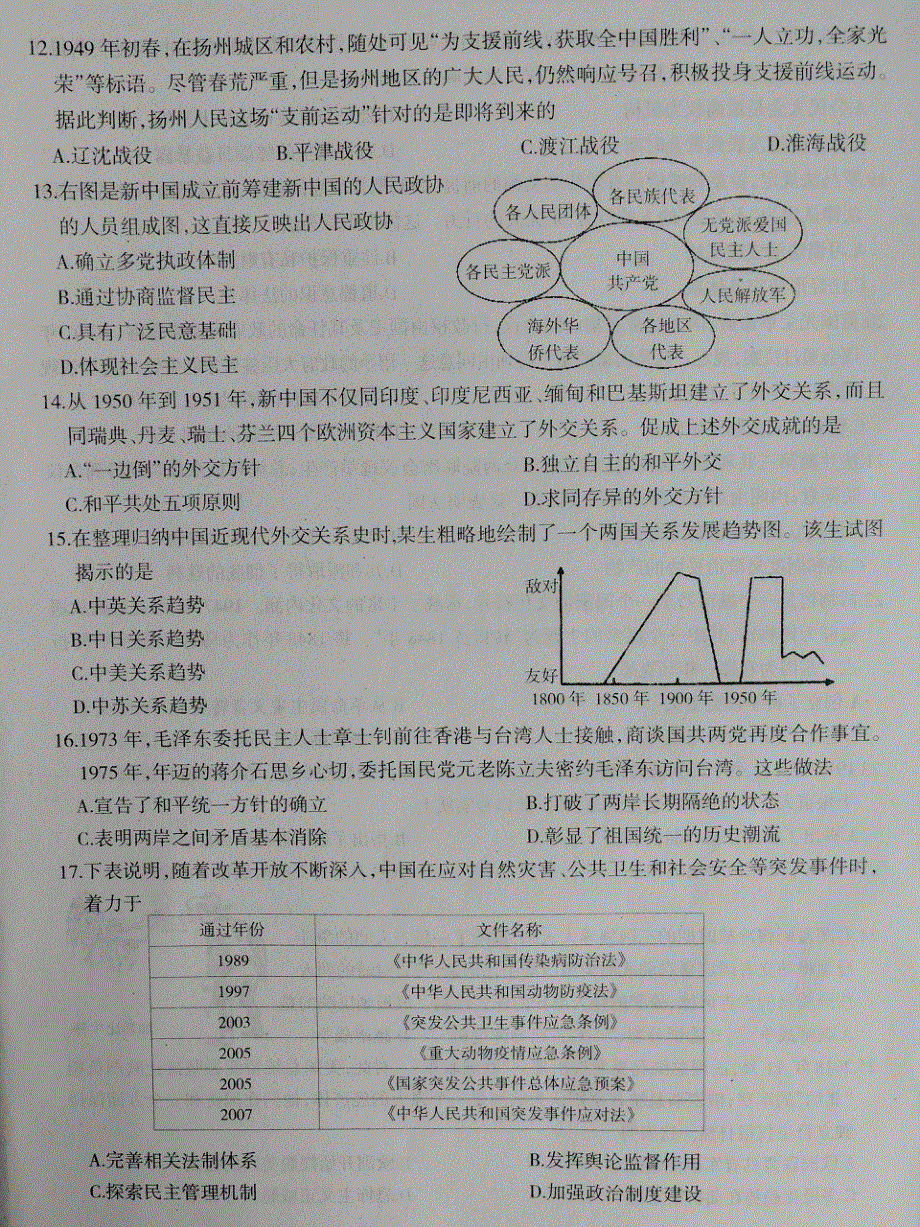 12.1949年初春,在扬州城区和农村,随处可见“为支援前线,获取全中国胜利”、“一人立功,全家光
荣”等标语。尽管春荒严重,但是扬州地区的广大人民,仍然响应号召,积极投身支援前线运动。
据此判断,扬州人民这场“支前运动”针对的是即将到来的
A.辽沈战役 B.平津战役 C.渡江战役 D.淮海战役
13.右图是新中国成立前筹建新中国的人民政协
的人员组成图,这直接反映出人民政协
A.确立多党执政体制
B.通过协商监督民主
C.具有广泛民意基础
D.体现社会主义民主
各人民团体
各民族代表
无党派爱国
民主人士
各民主党派
中国
共产党
人民解放军
海外华
侨代表
各地区
代表
14.从1950年到1951年,新中国不仅同印度、印度尼西亚、缅甸和巴基斯坦建立了外交关系,而且
同瑞典、丹麦、瑞士、芬兰四个欧洲资本主义国家建立了外交关系。促成上述外交成就的是
A.“一边倒”的外交方针 B.独立自主的和平外交
C.和平共处五项原则 D.求同存异的外交方针
15.在整理归纳中国近现代外交关系史时,某生粗略地绘制了一个两国关系发展趋势图。该生试图
揭示的是
A.中英关系趋势
B.中日关系趋势
C.中美关系趋势
D.中苏关系趋势
敌对
友好
1800年 1850年 1900年 1950年
16.1973年,毛泽东委托民主人士章士钊前往香港与台湾人士接触,商谈国共两党再度合作事宜。
1975年,年迈的蒋介石思乡心切,委托国民党元老陈立夫密约毛泽东访问台湾。这些做法
A.宣告了和平统一方针的确立 B.打破了两岸长期隔绝的状态
C.表明两岸之间矛盾基本消除 D.彰显了祖国统一的历史潮流
17.下表说明,随着改革开放不断深入,中国在应对自然灾害、公共卫生和社会安全等突发事件时,
着力于
通过年份 文件名称
1989 《中华人民共和国传染病防治法》
1997 《中华人民共和国动物防疫法》
2003 《突发公共卫生事件应急条例》
2005 《重大动物疫情应急条例》
2005 《国家突发公共事件总体应急预案》
2007 《中华人民共和国突发事件应对法》
A.完善相关法制体系 B.发挥舆论监督作用
C.探索民主管理机制 D.加强政治制度建设